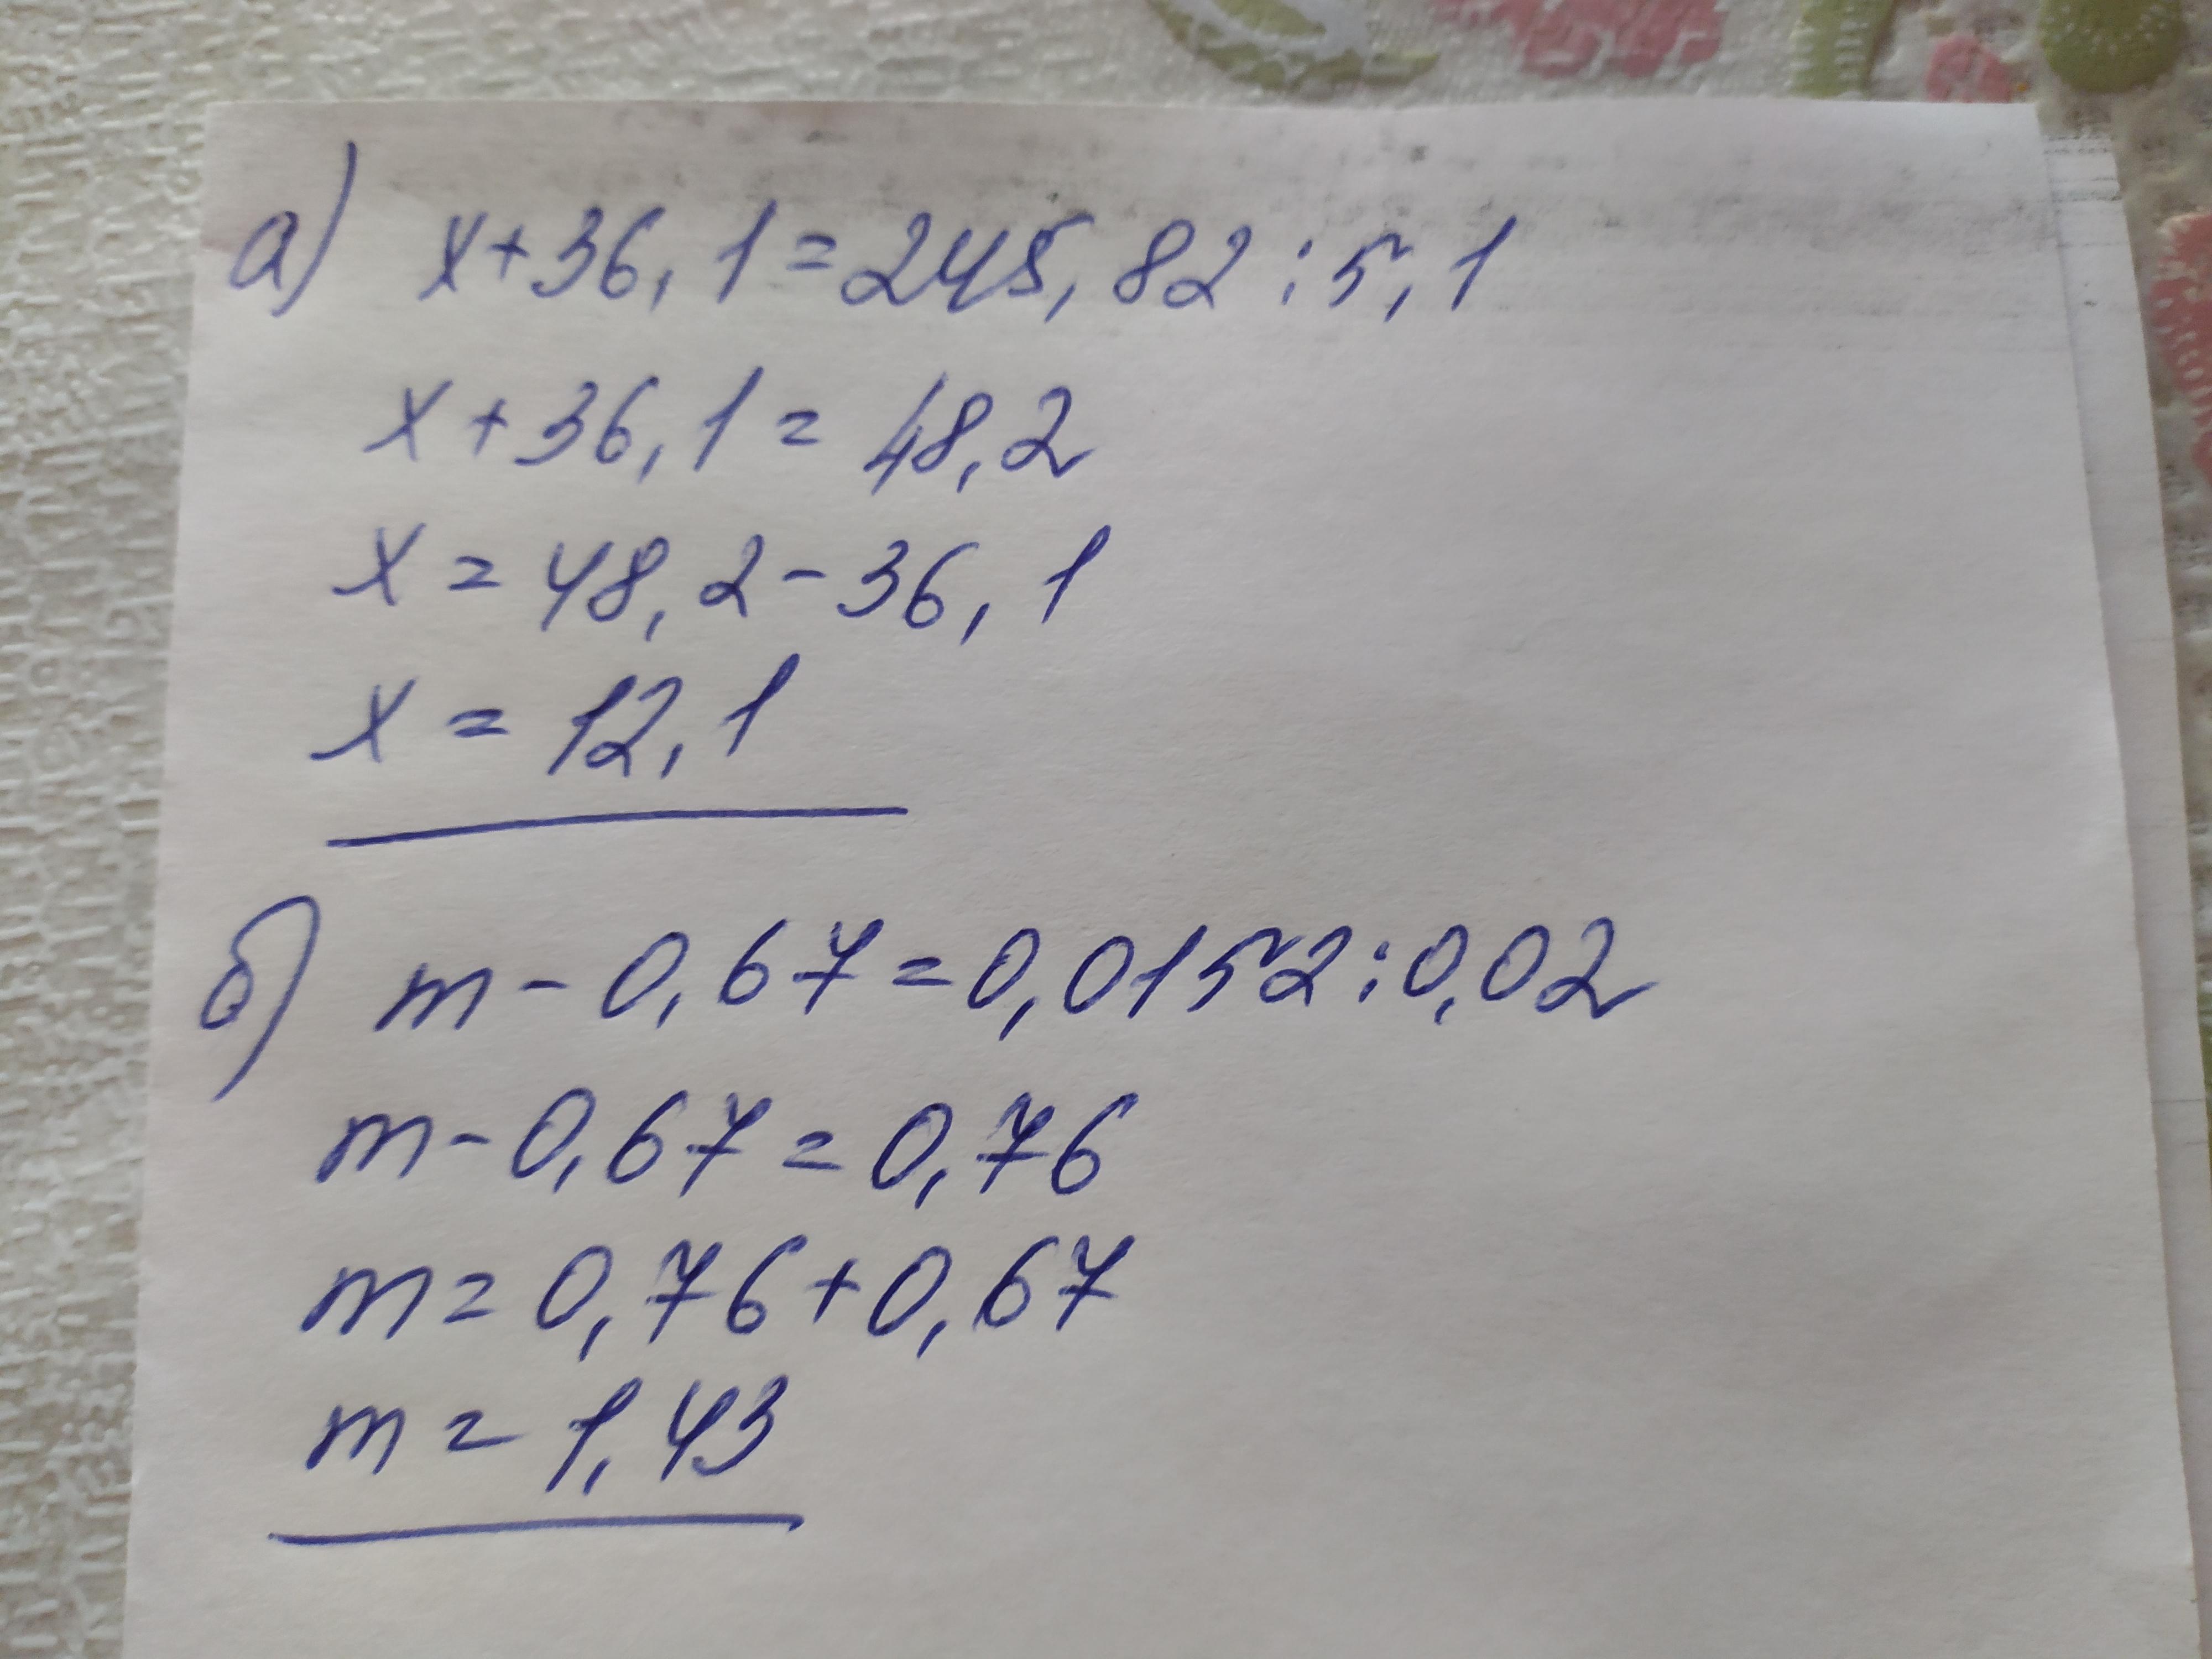 а) x+36,1=245,82:5,1
x+36,1=48,2
x=48,2-36,1
x=12,1
б) m-0,67=0,0152:0,02
m-0,67=0,76
m=0,76+0,67
m=1,43